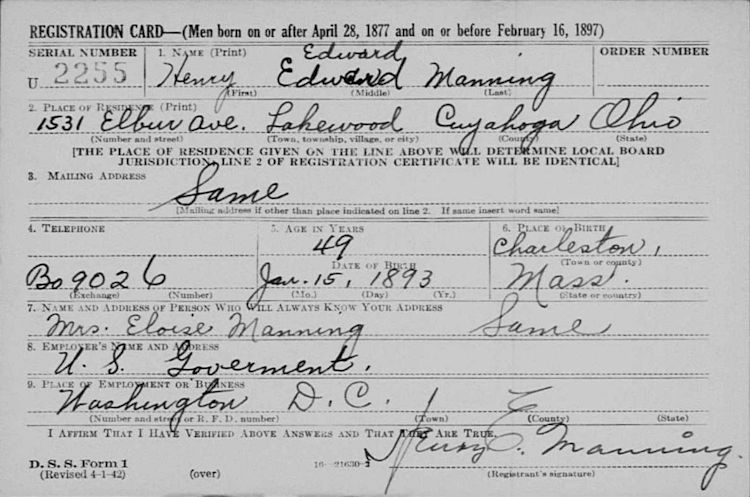 REGISTRATION CARD—(Men born on or after April 28, 1877 and on or before February 16, 1897)
SERIAL NUMBER 1. NAME (Print) Edward ORDER NUMBER
U 2255 Henry Edward Manning
(First) (Middle) (Last)
2. PLACE OF RESIDENCE (Print)
1531 Elbur Ave. Lakewood Cuyahoga Ohio
(Number and street) (Town, township, village, or city) (County) (State)
[THE PLACE OF RESIDENCE GIVEN ON THE LINE ABOVE WILL DETERMINE LOCAL BOARD
JURISDICTION; LINE 2 OF REGISTRATION CERTIFICATE WILL BE IDENTICAL]
3. MAILING ADDRESS
Same
[Mailing address if other than place indicated on line 2. If same insert word same]
4. TELEPHONE 5. AGE IN YEARS 6. PLACE OF BIRTH
49 Charleston,
DATE OF BIRTH (Town or county)
Bo 9026 Jan. 15, 1893 Mass.
(Exchange) (Number) (Mo.) (Day) (Yr.) (State or country)
7. NAME AND ADDRESS OF PERSON WHO WILL ALWAYS KNOW YOUR ADDRESS
Mrs. Eloise Manning Same
8. EMPLOYER'S NAME AND ADDRESS
U. S. Goverment.
9. PLACE OF EMPLOYMENT OR BUSINESS
Washington D. C.
(Number and street or R. F. D. number) (Town) (County) (State)
I AFFIRM THAT I HAVE VERIFIED ABOVE ANSWERS AND THAT THEY ARE TRUE.
Henry E. Manning.
D. S. S. Form 1 16—21630-2
(Revised 4-1-42) (over) (Registrant's signature)